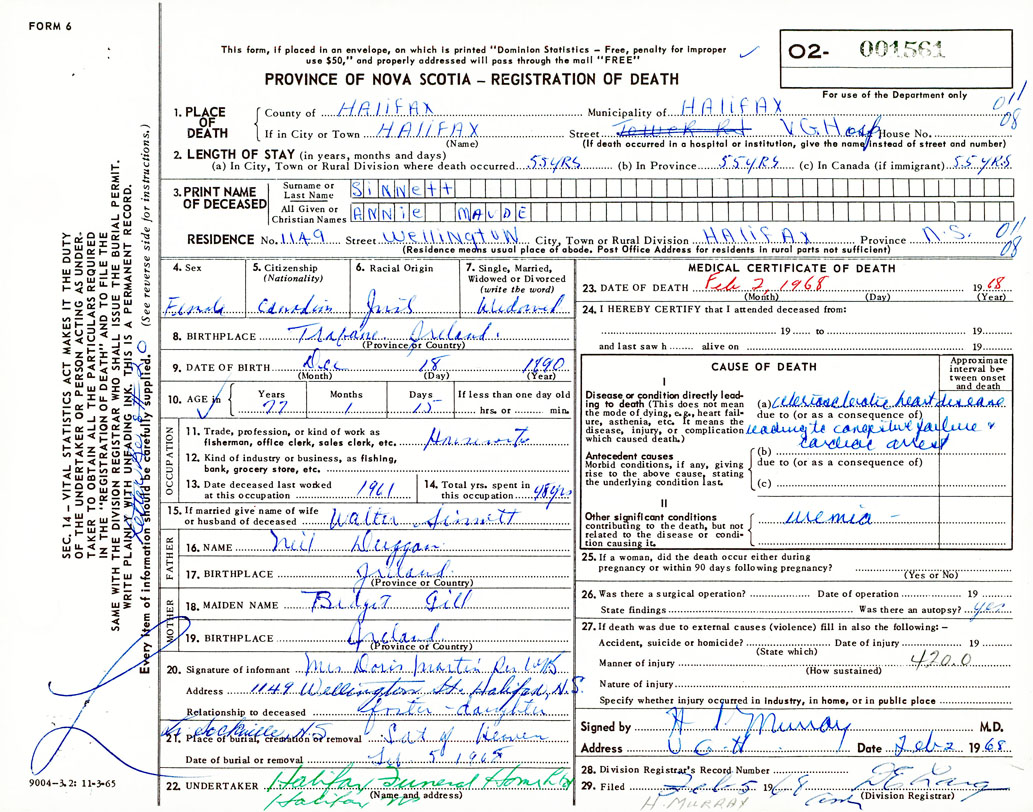 FORM 6
This form, if placed in an envelope, on which is printed "Dominion Statistics – Free, penalty for improper
use $50," and properly addressed will pass through the mail "FREE"
PROVINCE OF NOVA SCOTIA – REGISTRATION OF DEATH
O2- 001561
For use of the Department only
011
08
1. PLACE OF DEATH
County of HALIFAX Municipality of HALIFAX
If in City or Town HALIFAX Street Tower Rd V G Hosp House No.
(Name) (If death occurred in a hospital or institution, give the name instead of street and number)
2. LENGTH OF STAY (in years, months and days)
(a) In City, Town or Rural Division where death occurred 55 YRS (b) In Province 55 YRS (c) In Canada (if immigrant) 55 YRS
3. PRINT NAME OF DECEASED
Surname or Last Name SiNNett
All Given or Christian Names ANNie MAUDE
RESIDENCE No. 1149 Street Wellington City, Town or Rural Division HALIFAX Province N.S.
(Residence means usual place of abode. Post Office Address for residents in rural parts not sufficient)
011
08
4. Sex 5. Citizenship (Nationality) 6. Racial Origin 7. Single, Married, Widowed or Divorced (write the word)
Female Canadian Irish Widowed
8. BIRTHPLACE Ireland.
(Province or Country)
9. DATE OF BIRTH Dec 18 1890
(Month) (Day) (Year)
10. AGE in Years Months Days If less than one day old
77 1 15 hrs. or min.
OCCUPATION
11. Trade, profession, or kind of work as
fisherman, office clerk, sales clerk, etc. Housewife
12. Kind of industry or business, as fishing,
bank, grocery store, etc.
13. Date deceased last worked
at this occupation 1961
14. Total yrs. spent in
this occupation 48 yrs
15. If married give name of wife
or husband of deceased Walter Sinnett
FATHER
16. NAME Neil Duggan
17. BIRTHPLACE Ireland.
(Province or Country)
MOTHER
18. MAIDEN NAME Bridget Gill
19. BIRTHPLACE Ireland
(Province or Country)
20. Signature of informant Mrs Doris Martin
Address 1149 Wellington St. Halifax, N.S.
Relationship to deceased foster - daughter
21. Place of burial, cremation or removal Gate of Heaven
Sackville, N.S.
Date of burial or removal Feb 5 1968
22. UNDERTAKER Halifax Funeral Home Ltd
(Name and address)
Halifax NS
MEDICAL CERTIFICATE OF DEATH
23. DATE OF DEATH Feb 2, 1968 1968
(Month) (Day) (Year)
24. I HEREBY CERTIFY that I attended deceased from:
19 to 19
and last saw h alive on 19
CAUSE OF DEATH
Approximate interval between onset and death
I
Disease or condition directly leading to death (This does not mean
the mode of dying, e.g., heart failure, asthenia, etc. It means the
disease, injury, or complication
which caused death.)
(a) arteriosclerotic heart disease
due to (or as a consequence of)
leading to congestive failure &
cardiac arrest
Antecedent causes
Morbid conditions, if any, giving
rise to the above cause, stating
the underlying condition last.
(b)
due to (or as a consequence of)
(c)
II
Other significant conditions
contributing to the death, but not
related to the disease or condition causing it.
uremia -
25. If a woman, did the death occur either during
pregnancy or within 90 days following pregnancy?
(Yes or No)
26. Was there a surgical operation? Date of operation 19
State findings Was there an autopsy? yes
27. If death was due to external causes (violence) fill in also the following: –
Accident, suicide or homicide? Date of injury 19
(State which)
Manner of injury 420.0
(How sustained)
Nature of injury
Specify whether injury occurred in industry, in home, or in public place
Signed by H I Murray M.D.
Address V.G.H. Date Feb 2 1968
28. Division Registrar's Record Number
29. Filed Feb 5 1968
(Division Registrar)
H. MURRAY
SEC. 14 – VITAL STATISTICS ACT MAKES IT THE DUTY
OF THE UNDERTAKER OR PERSON ACTING AS UNDER-
TAKER TO OBTAIN ALL THE PARTICULARS REQUIRED
IN THE "REGISTRATION OF DEATH" AND TO FILE THE
SAME WITH THE DIVISION REGISTRAR WHO SHALL ISSUE THE BURIAL PERMIT.
WRITE PLAINLY WITH UNFADING INK. THIS IS A PERMANENT RECORD.
Every item of information should be carefully supplied. (See reverse side for instructions.)
9004–3.2: 11-3-65